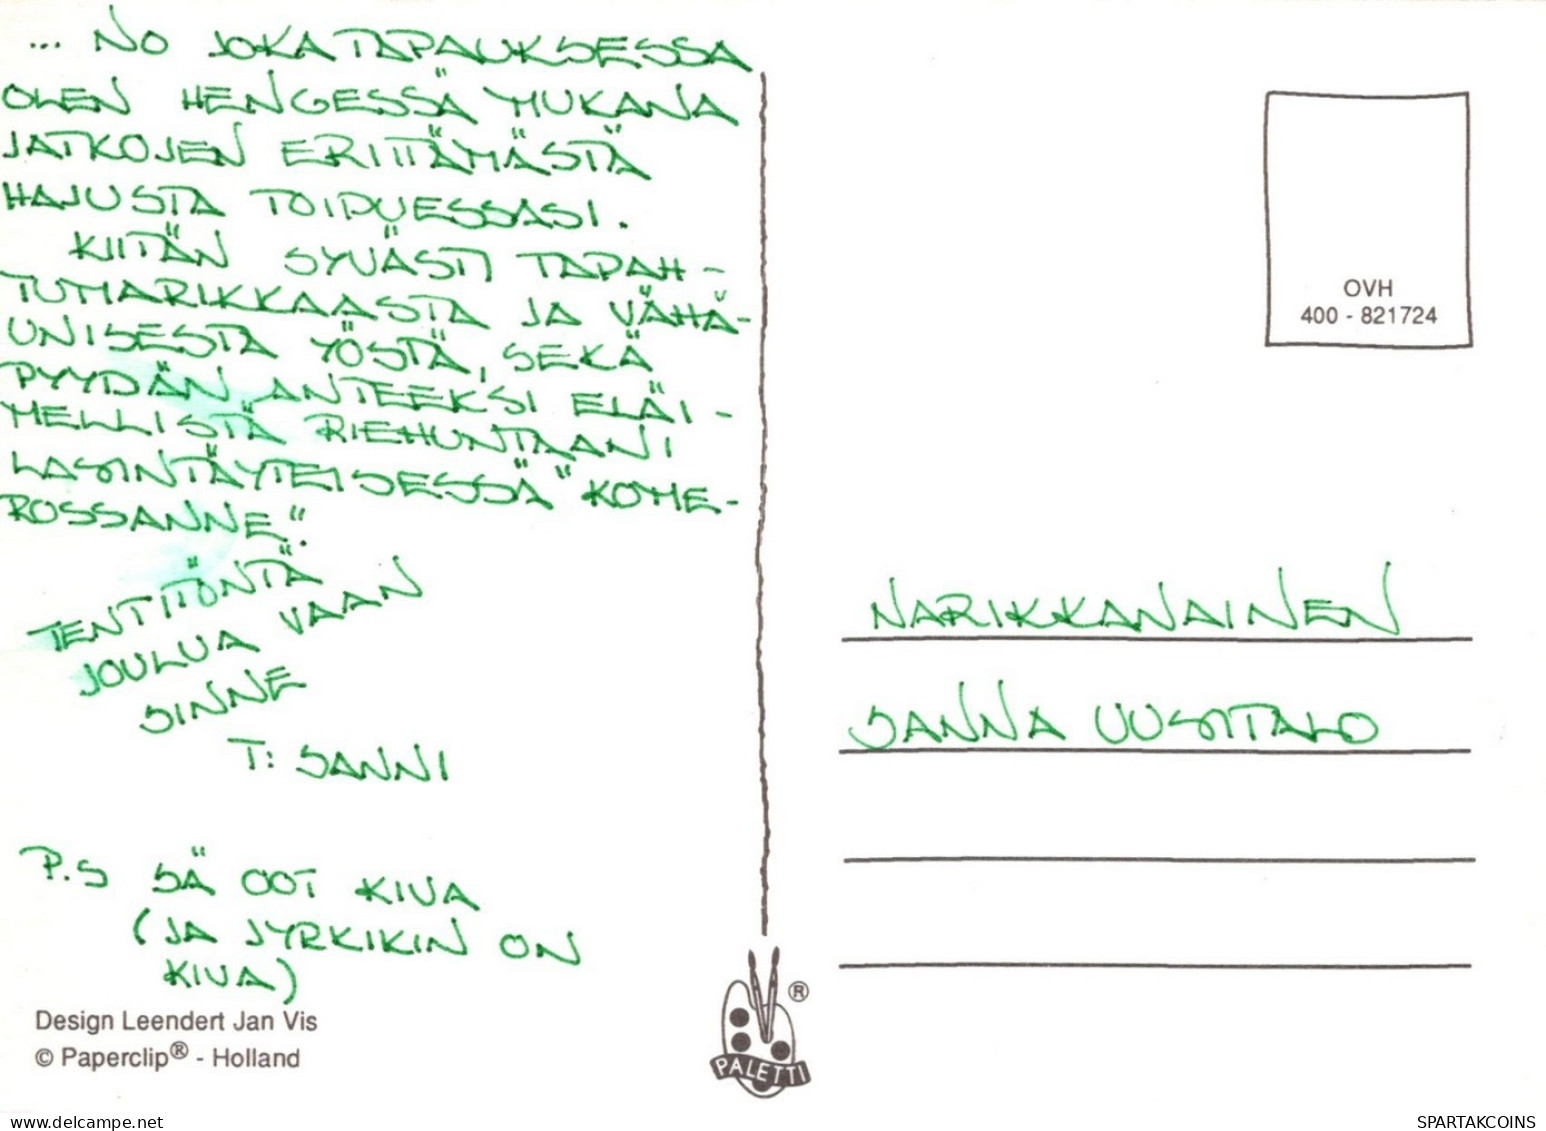 ... NO JOKA TAPAUKSESSA
OLEN HENGESSÄ MUKANA
JATKOJEN ERITTÄMÄSTÄ
HAJUSTA TOIPUESSASI.
KIITÄN SYVÄSTI TAPAH-
TUMARIKKAASTA JA VÄHÄ-
UNISESTA YÖSTÄ, SEKÄ
PYYDÄN ANTEEKSI ELÄI-
MELLISTÄ RIEHUNTAANI
LASINTÄYTEISESSÄ "KOME-
ROSSANNE".
TENTITÖNTÄ
JOULUA VAAN
SINNE
T: SANNI
P.S SÄ OOT KIVA
(JA JYRKIKIN ON
KIVA)
Design Leendert Jan Vis
© Paperclip® - Holland
PALETTI ®
OVH
400 - 821724
NARIKKANAINEN
SANNA UUSITALO
my.delcampe.net
SPARTAKCOINS